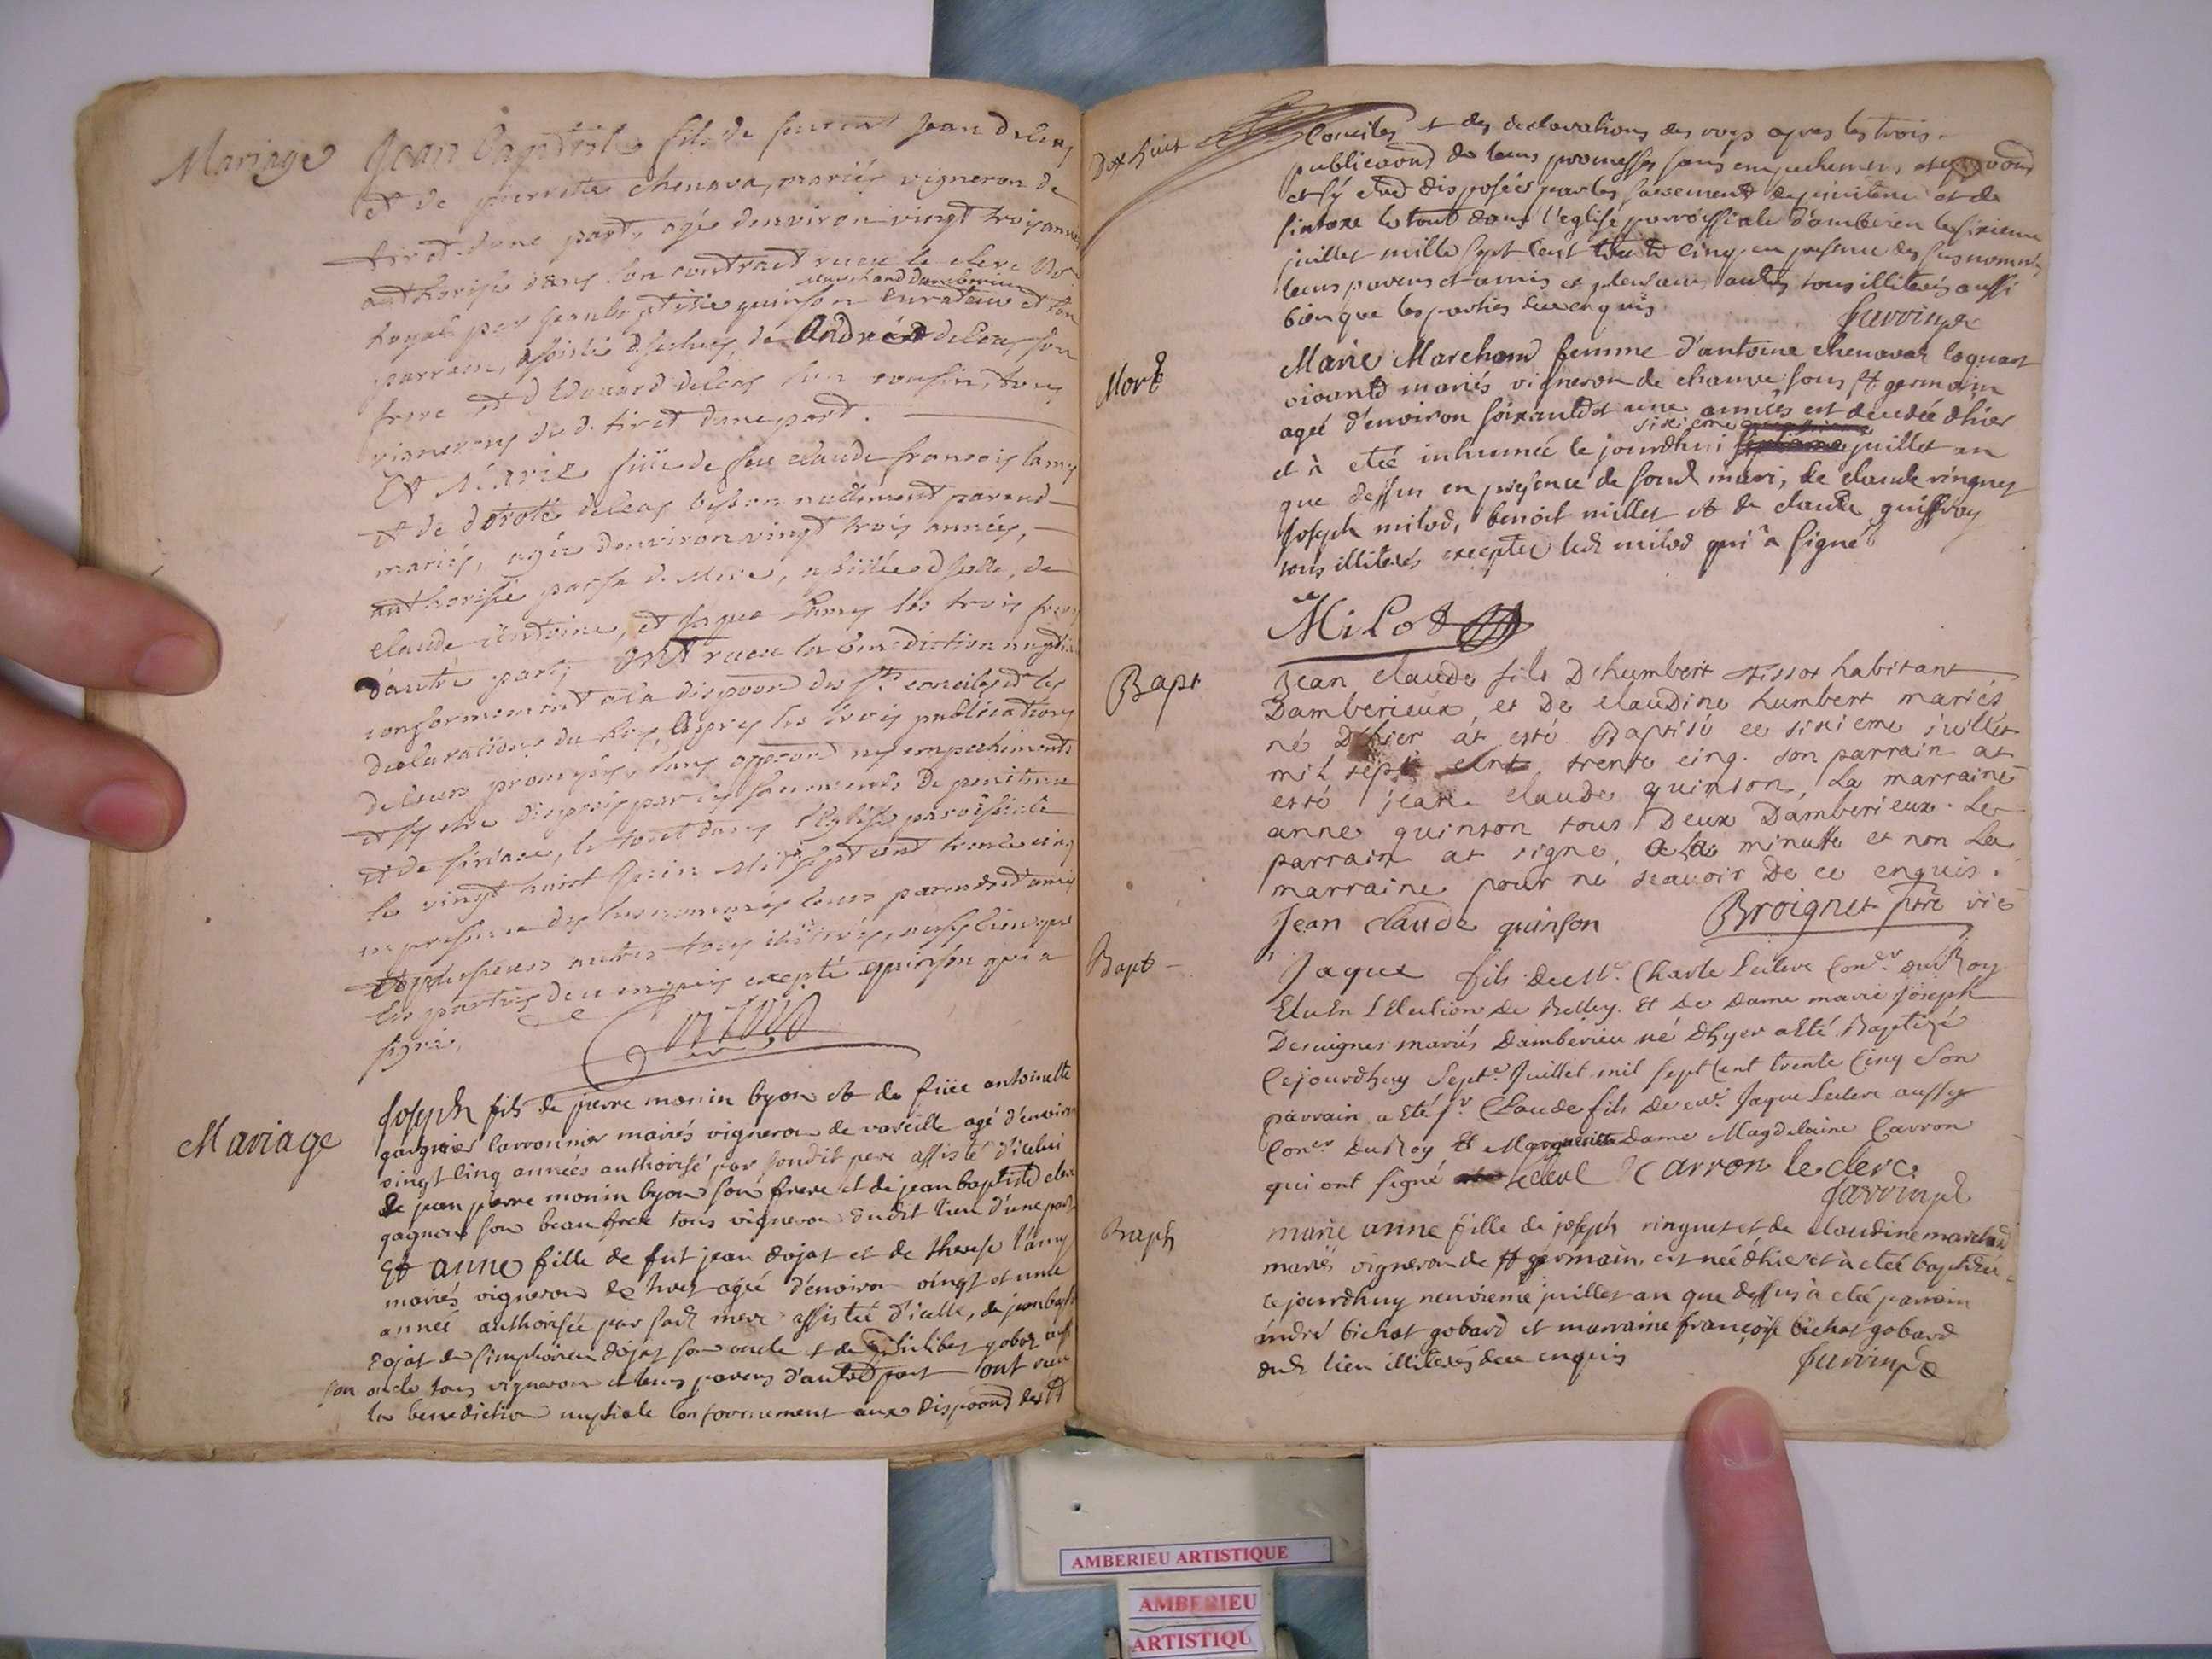 Mariage
Jean Baptiste fils de Jean deleas
et de pierrette chenava, mariés vigneron de
tiret dune part, agé denviron vingt trois années
authorisé dans son contract receu le clerc
marchand damberieux
royal par Jean baptiste quinson curateur et son
parrain, assisté de André deleas son
frere et d Edouard deleas son cousin, tous
vignerons du d. tiret dune part.
Et Marie fille de feu claude francois lamy
et de dorote deleas
mariés, agée denviron vingt trois années,
authorisée par sa d. Mere, assistée d'elle, de
claude antoine, et Jaque Lamy ses trois freres
d'autre part, ont receu la benediction nuptiale
conformement a la disposond des Sts conciles et les
declarations du Roy, apres les trois publications
de leurs promesses, sans opposond ny empechements
et sy etre disposés par les sacrements De penitence
et de sintaxe, le tout dans l'Eglise paroissiale
le vingt huict Juin Mil sept cent trente cinq
en presence des susnommés leurs parents et amis
et plusieurs autres tous illiterés, aussy bien que
les parties de ce enquis excepté quinson qui a
signé,
Mariage
Joseph fils de pierre monin byon et de feüe antoinette
gagneur carronnier mariés vigneron de vareille agé d'environ
vingt cinq années authorisé par sondit pere assisté d'icelui
de jean pierre monin byon son frere et de jean baptiste
gagneur son beau frere tous vigneron dudit lieu d'une part
Et anne fille de fut jean dojat et de therese l'amy
mariés vigneron de agée d'environ vingt et une
année authorisée par sad mere assistée d'icelle, de jean bapt
dojat de simphorien dojat son oncle et de philibert gobet
son oncle tous vigneron et leurs parens d'autre part ont receu
la benediction nuptiale conformement aux disposond des st
Dix huit
Conciles et des declarations des roys apres les trois
publicaond de leurs promesses sans empechemens et opposond
et s'y etant disposées par les sacement de penitene et de
sintaxe le tout dans l'eglise parroissiale d'amberieu le sixieme
juillet mille sept cent trente cinq en presence des susnommés
leurs parens et amis et plusieurs autres tous illiterés aussi
bien que les parties de ce enquis
Mort
Marie Marchand femme d'antoine chenavaz loquart
vivants mariés vigneron de chauve sous st germain
ageé d'environ soixante et une années est decedée d'hier
sixieme
et à eteé inhumée le jourdhui juillet an
que dessus en presence de soud mari, de claude ringuet
Joseph milod, benoit millet et de claude guiffray
tous illiterés exceptez led milod qui à signé
Milod
Bapt
Jean claude fils D'humbert tissot habitant
Damberieux, et De claudine humbert mariés,
né D'hier at esté Baptisé ce sixieme juillet
mil sept cent trente cinq. son parrain at
esté jean claude quinson, La marraine
anne quinson tous Deux Damberieux. Le
parrain at signé, a la minutte et non La
marraine pour ne sçavoir De ce enquis.
Jean Claude quinson Broignet ptre vic
Bapt
Jaque fils de Mr Charle Leclerc Coner du Roy
Elu En L'Election de Belley. Et De Dame marie Joseph
Desvignes mariés Damberieu né d'hyer a Eté Baptizé
Cejourdhuy Septe Juillet mil Sept Cent trente Cinq Son
parrain a Eté Sr Claude fils de Mr Jaque Leclerc aussy
Coner Du Roy Et Marguerite dame Magdelaine Carron
qui ont signé leclerc Carron leclerc
Baph
marie anne fille de joseph ringuet et de claudine marchand
mariés vigneron de st germain est née d'hier et à eteé baptisée
cejourdhuy neuvieme juillet an que dessus à eté parrain
andré bichat gobard et marraine françoise bichat gobard
dud lieu illiterés de ce enquis
AMBERIEU ARTISTIQUE
AMBERIEU
ARTISTIQU